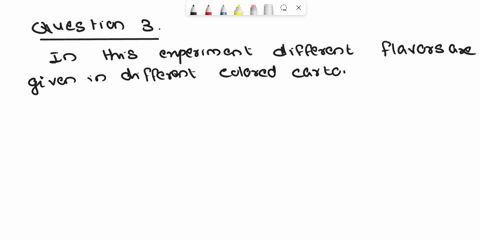 Question 3.
In this experiment different flavors are
given in different colored carto.